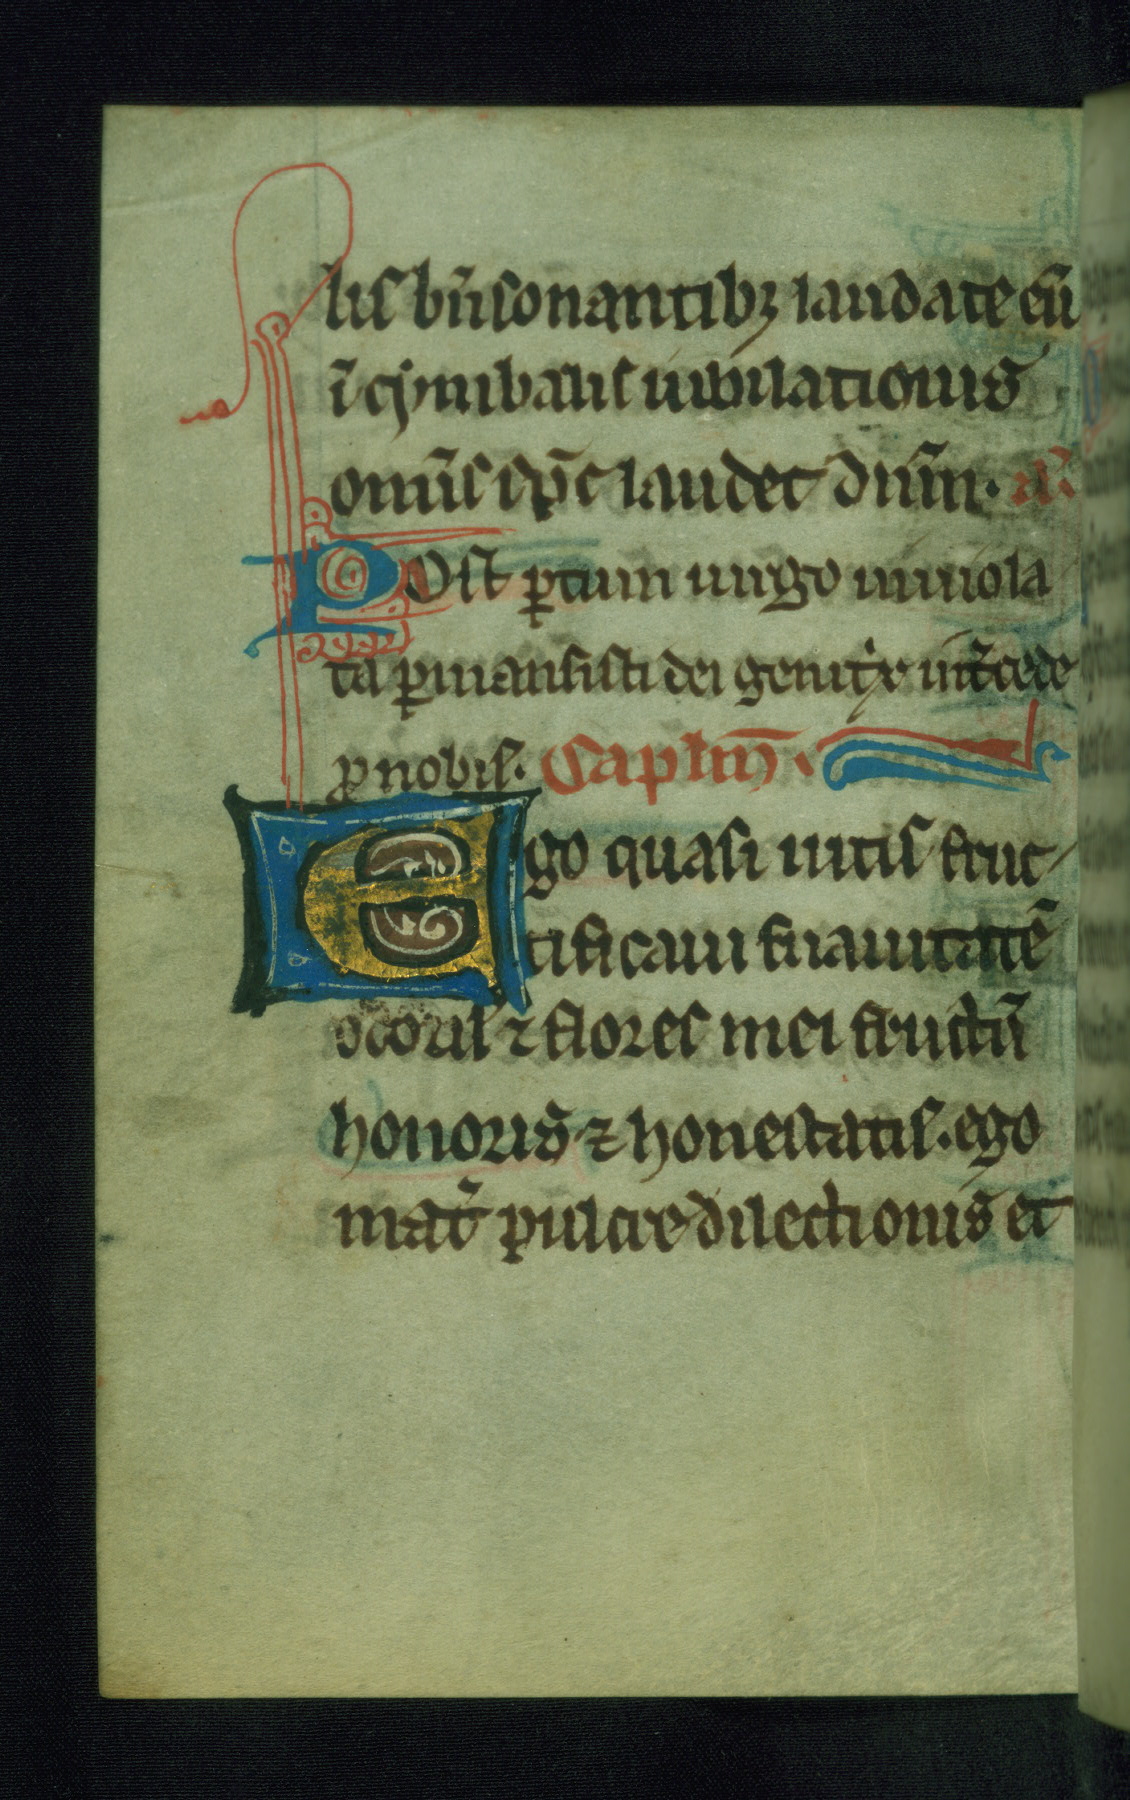 lis bn̄sonantibꝫ laudate eū
ī cymbalis iubilationis
omnīs sp̄c laudet dn̄m. an̄.
Post ꝑtum uirgo inuiola
ta ꝑmansisti dei genitͥx int̄cede
ꝓ nobis. Capłm̄.
Ego quasi uitis fruc
tificaui suauitatē
odoris ⁊ flores mei fructū
honoris ⁊ honestatis. ego
mat̄ pulcre dilectionis et